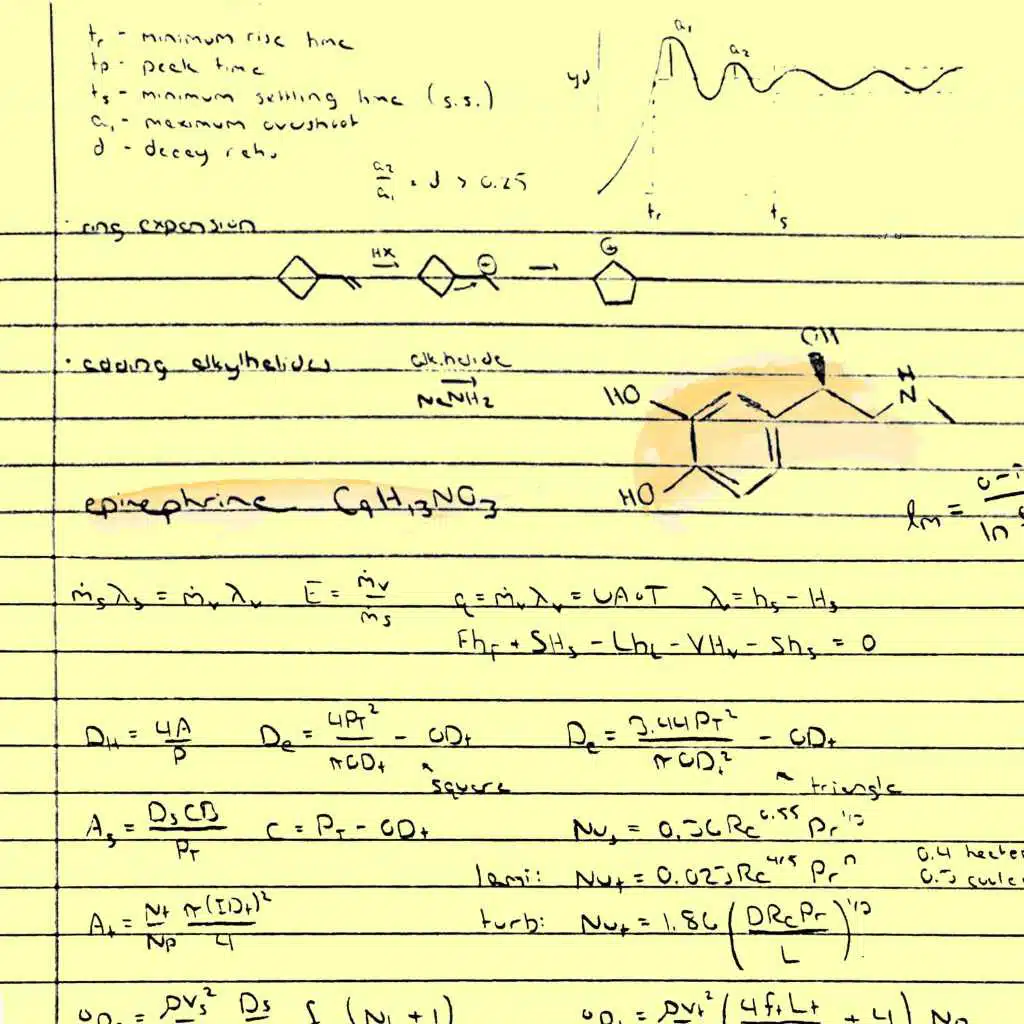 tr - minimum rise time
tp - peak time
ts - minimum settling time (s.s.)
a1 - maximum overshoot
d - decay ratio
a2/a1 = d > 0.25
a1
a2
yd
tr
ts
· ring expansion
HX
⊖
⊕
· adding alkylhalides
alk.halide
NaNH2
OH
HO
H
N
HO
epinephrine C9H13NO3
lm =
ln
ṁsλs = ṁvλv E = ṁv/ṁs q = ṁvλv = UAΔT λ = hs - Hs
FhF + SHs - LhL - VHv - Shs = 0
DH = 4A/P De = 4PT²/πODt - ODt De = 3.44PT²/πODt² - ODt
square
triangle
As = DsCB/PT C = PT - ODt Nus = 0.36Re^0.55 Pr^1/3
lami: Nut = 0.023Re^4/5 Pr^n
At = Nt/Np π(IDt)²/4 turb: Nut = 1.86(DRePr/L)^1/3
ρvs² Ds f (N + 1)
ρvt² (4ftLt + 4) Np